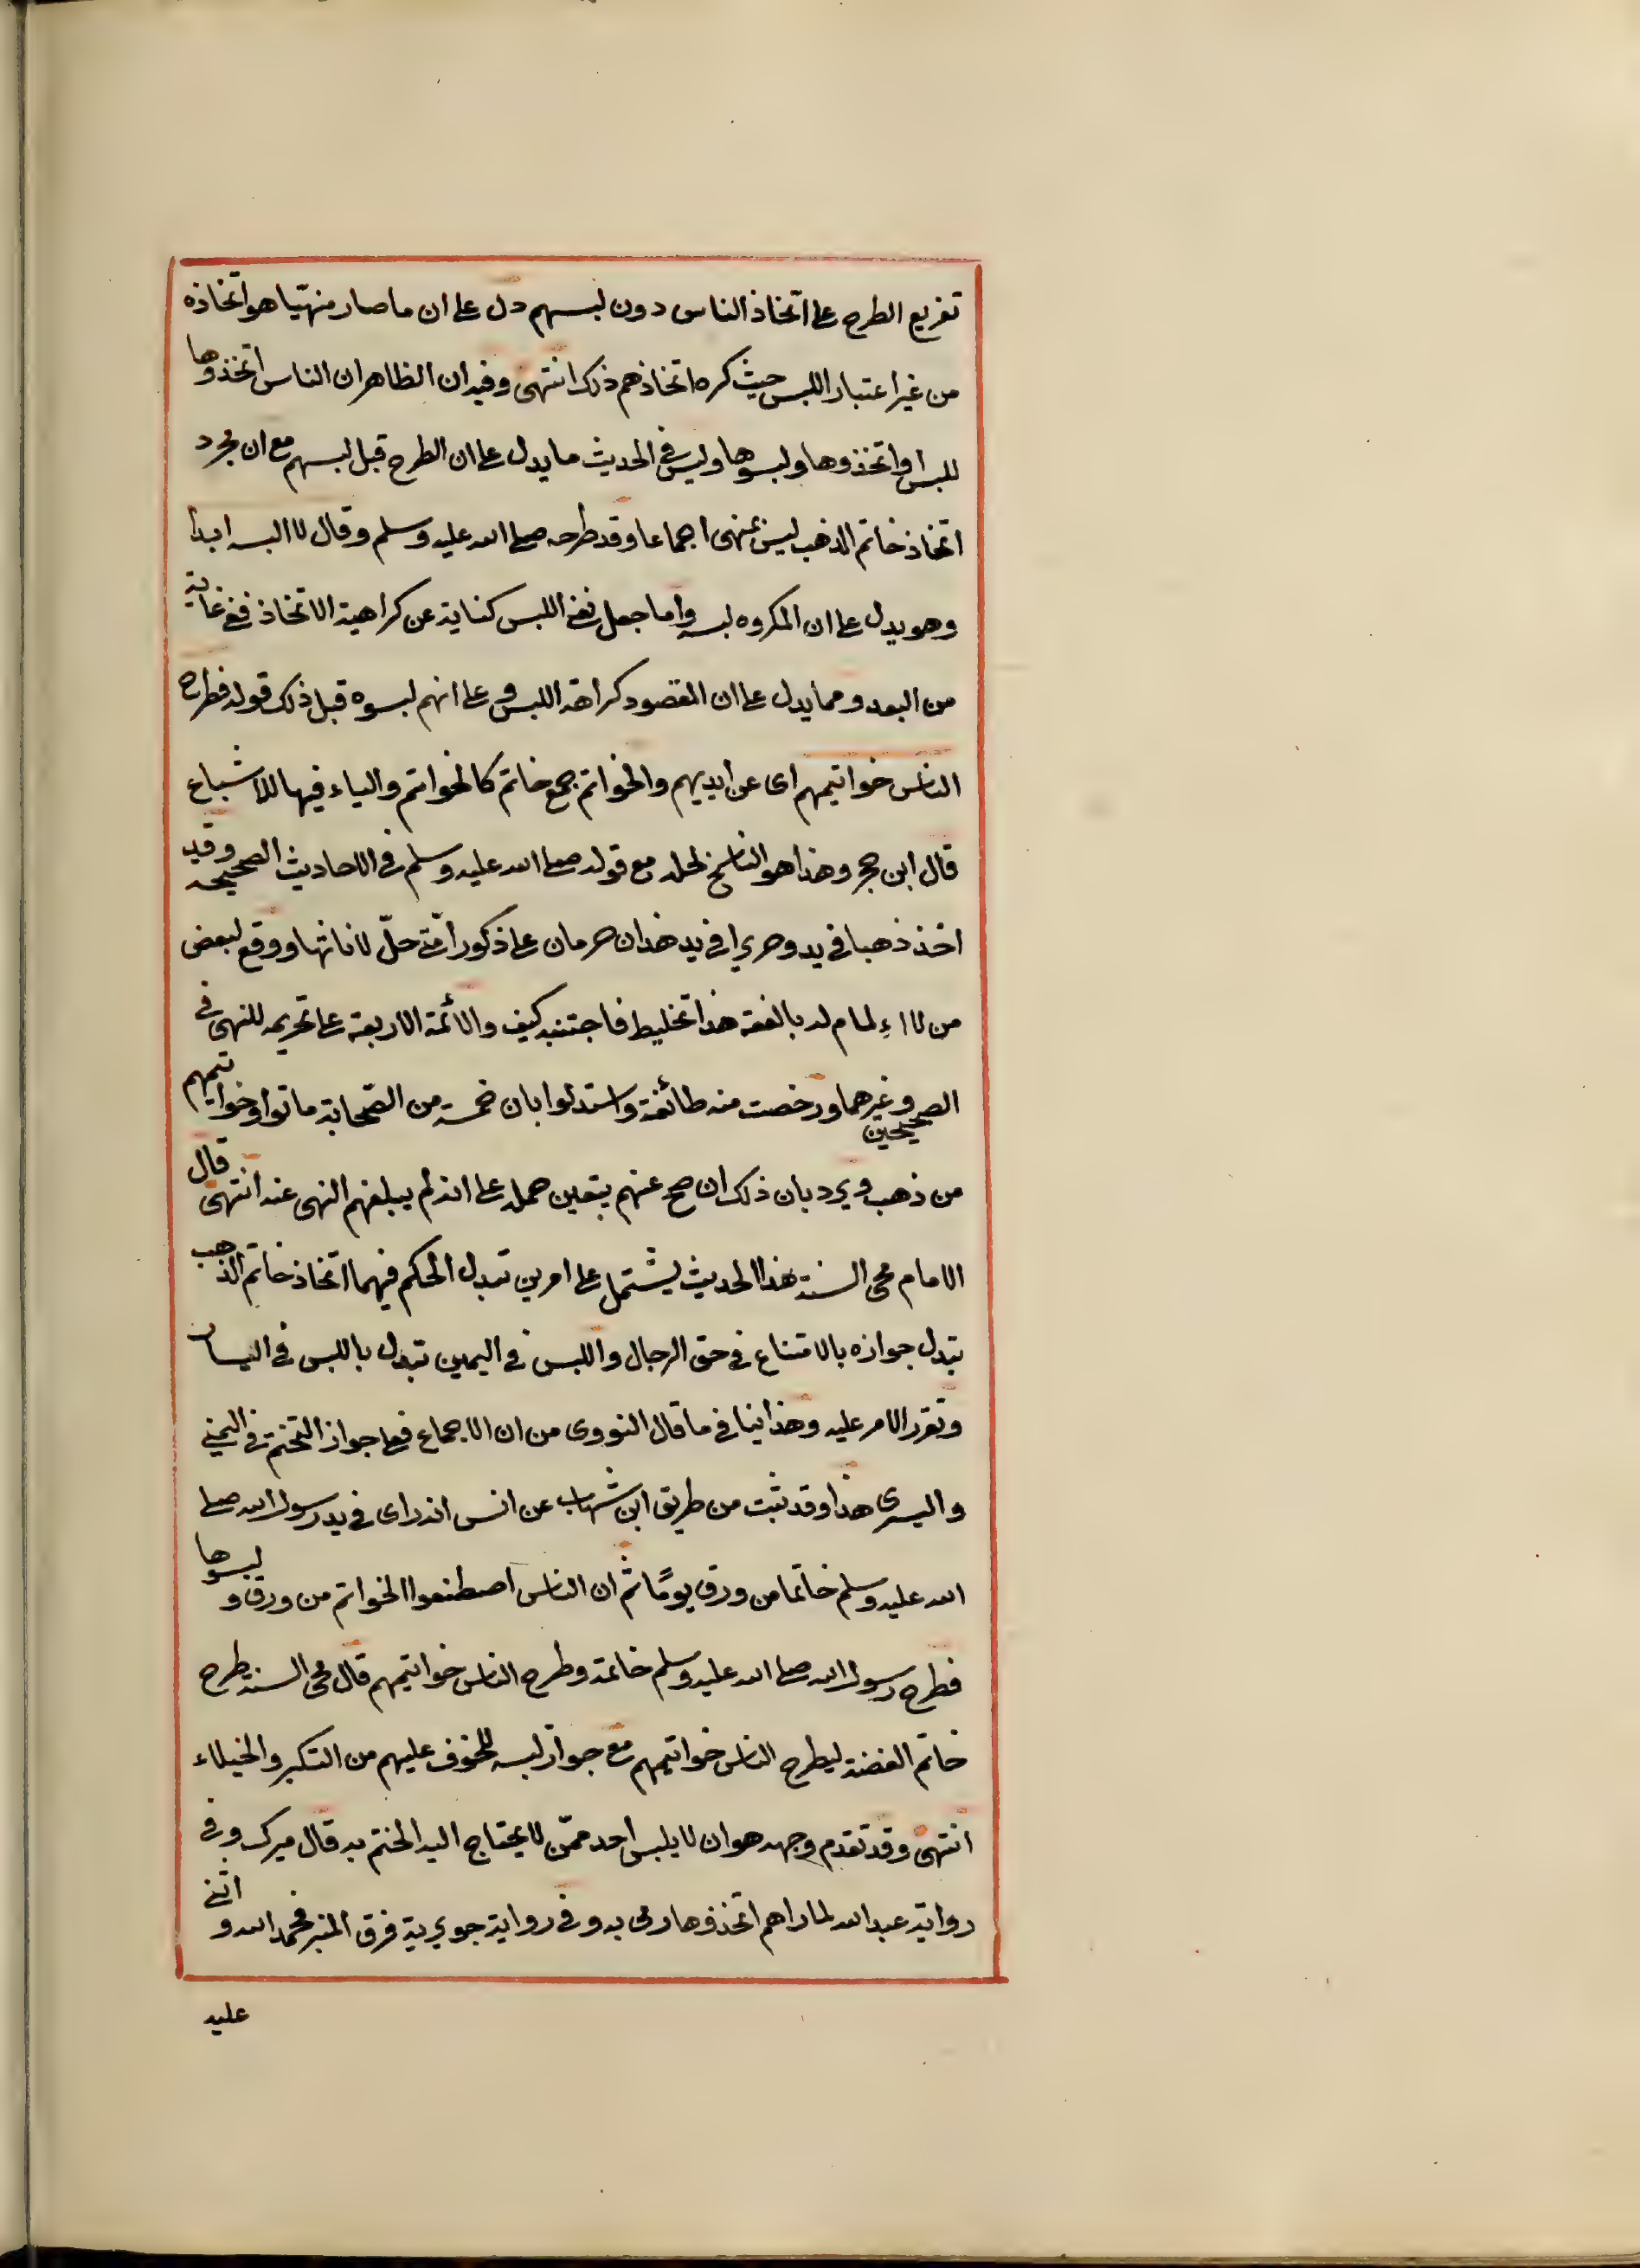 تفريع الطرح على اتخاذ الناس دون لبسهم دل على ان ما صار منهيّا هو اتخاذه
من غير اعتبار اللبس حيث كره اتخاذهم ذلك انتهى وفيه ان الظاهر ان الناس اتخذوها
للبس او اتخذوها ولبسوها وليس في الحديث ما يدل على ان الطرح قبل لبسهم مع ان مجرد
اتخاذ خاتم الذهب ليس بمنهى اجماعا وقد طرحه صلى الله عليه وسلم وقال لا البسه ابدا
وهو يدل على ان المكروه لبسه واما جعل نفى اللبس كناية عن كراهية الاتخاذ ففى غاية
من البعد ومما يدل على ان المقصود كراهة اللبس وعلى انهم لبسوه قبل ذلك قوله فطرح
الناس خواتيمهم اى عن ايديهم والخواتم جمع خاتم كالخواتم والياء فيها للاشباع
قال ابن حجر وهذا هو الناسخ لحله مع قوله صلى الله عليه وسلم في الاحاديث الصحيحه وقد
اخذ ذهبا في يد وحريرا في يد هذان حرمان على ذكور امّتى حلّ لاناثها ووقع لبعض
من لا المام له بالفقه هذا تخليط فاجتنبه كيف والائمة الاربعة على تحريمه للنهى في
الصحيحين وغيرهما ورخصت منه طائفة واستدلوا بان خمسة من الصّحابة ماتوا وخواتيمهم
من ذهب ويرد بان ذلك ان صح عنهم يتعين حمله على انه لم يبلغهم النهى عنه انتهى قال
الامام محى السنة هذا الحديث يشتمل على امرين تبدل الحكم فيهما اتخاذ خاتم الذهب
تبدل جوازه بالامتناع في حق الرجال واللبس في اليمين تبدل باللبس في اليسار
وتقرر الامر عليه وهذا ينافى ما قال النووى من ان الاجماع فى على جواز التختم في اليمنى
واليسرى هذا وقد ثبت من طريق ابن شهاب عن انس انه راى في يد رسول الله صلى
الله عليه وسلم خاتما من ورق يومًا ثم ان الناس اصطنعوا الخواتم من ورق ولبسوها
فطرح رسول الله صلى الله عليه وسلم خاتمه وطرح الناس خواتيمهم قال محى السنة طرح
خاتم الفضة ليطرح الناس خواتيمهم مع جواز لبسه للخوف عليهم من التكبر والخيلاء
انتهى وقد تقدم وجهه هو ان لا يلبس احد ممّن لا يحتاج اليه الختم به قال ميرك وفى
رواية عبد الله لما راهم اتخذوها رمى به وفى رواية جويرية فرق المنبر فحمد الله واثنى
عليه